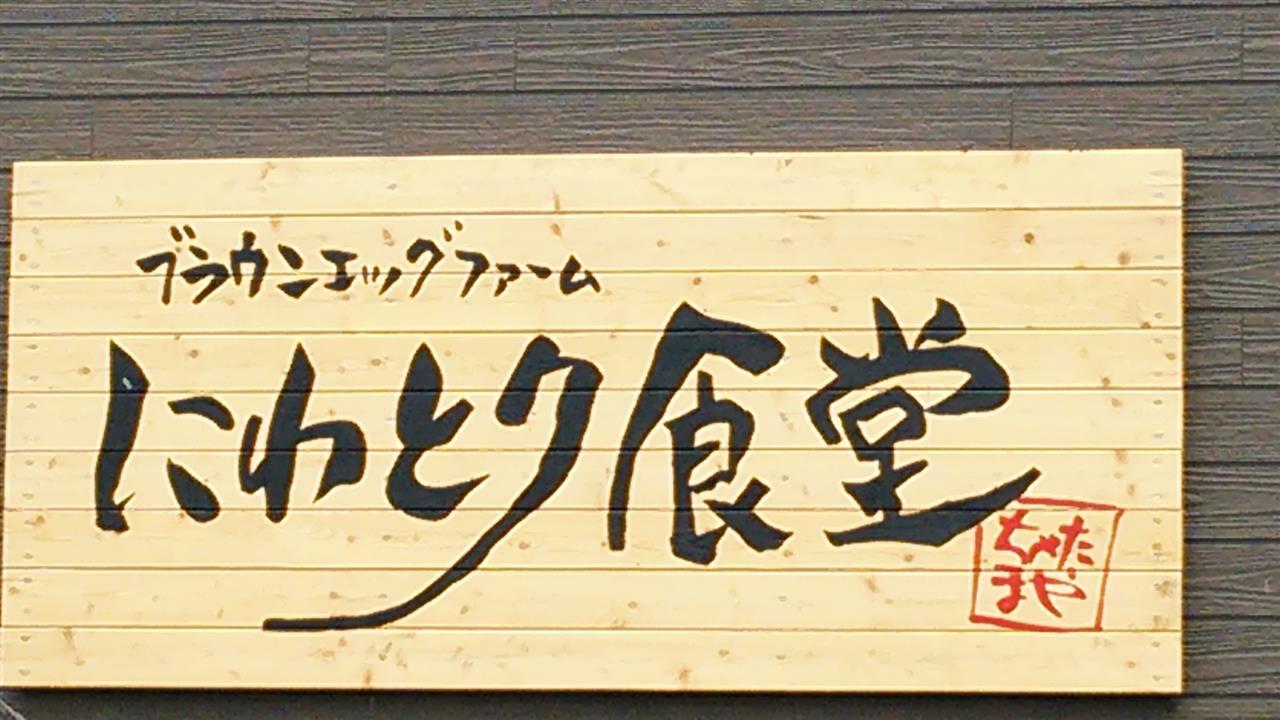 ブラウンエッグファーム
にわとり食堂
ちゃたまや